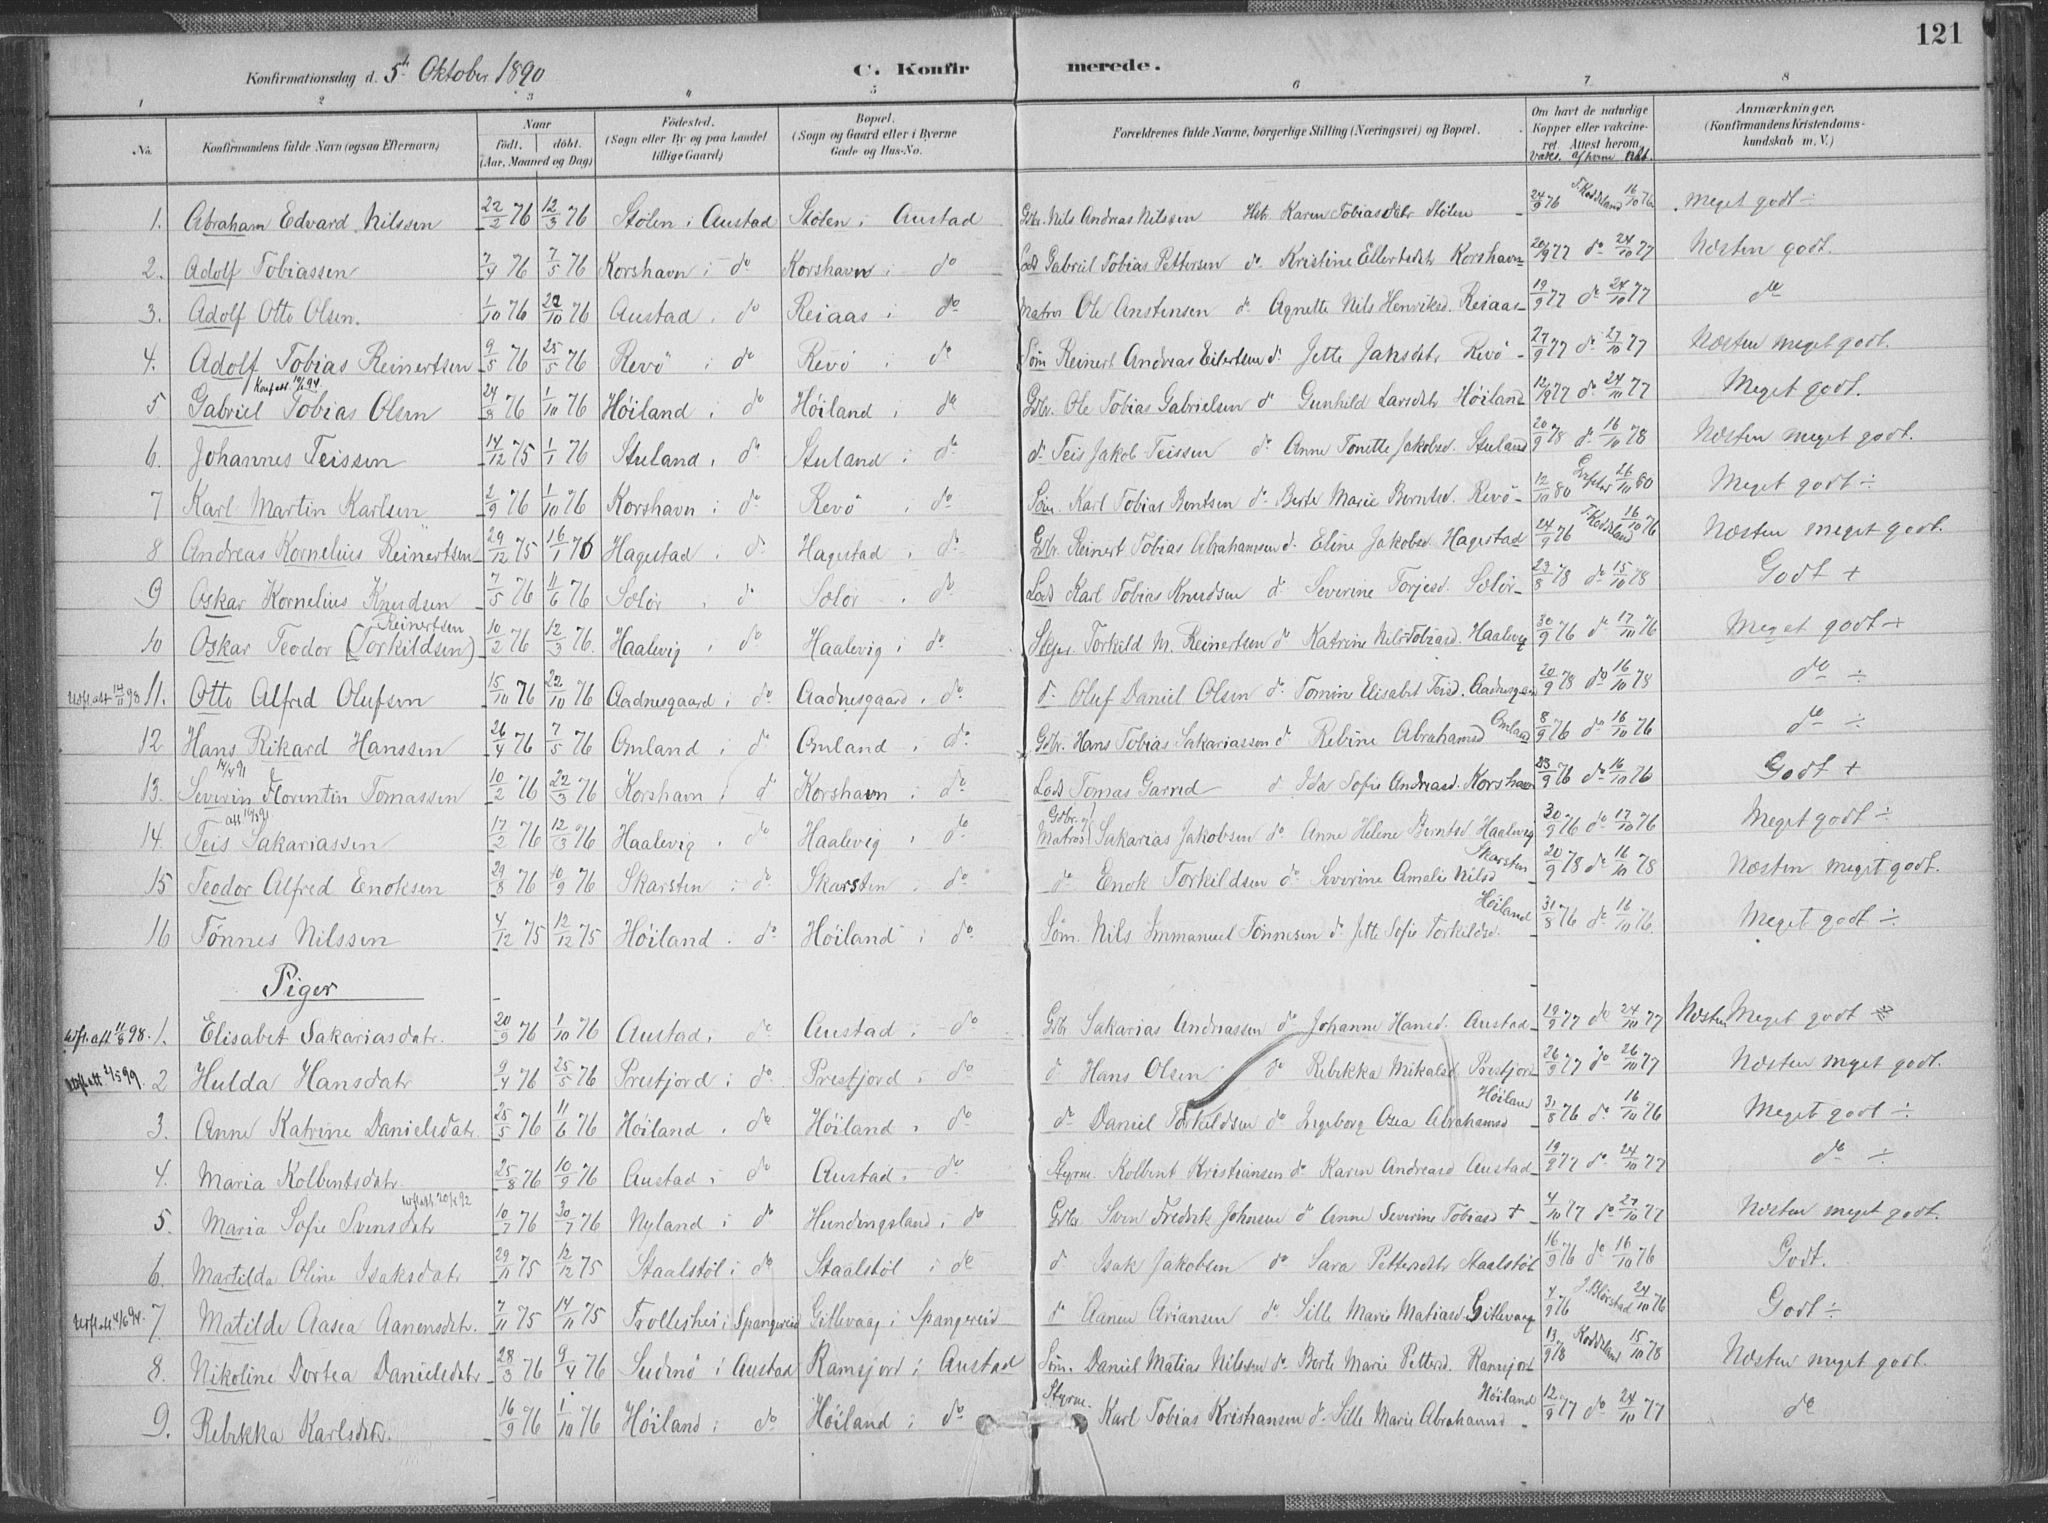 121
Konfirmationsdag d. 5te Oktober 1890 C. Konfirmerede.
1 2 3 4 5 6 7 8
No. Konfirmandens fulde Navn (ogsaa Efternavn) Naar födt. döbt. (Aar, Maaned og Dag) Födested. (Sogn eller By og paa Landet tillige Gaard) Bopæl. (Sogn og Gaard eller i Byerne Gade og Hus-No. Forældrenes fulde Navne, borgerlige Stilling (Næringsvei) og Bopæl. Om havt de naturlige Kopper eller vakcineret. Attest herom. vakc. af hvem Att. Anmærkninger. (Konfirmandens Kristendomskundskab m. V.)
1. Abraham Edvard Nilssen 22/2 76 12/3 76 Stølen i Austad Stølen i Austad Gdbr. Nils Andreas Nilssen Hst. Karen Tobiasdatr Stølen 24/9 76 T. Koddeland 16/10 76 Meget godt ÷
2. Adolf Tobiassen 7/4 76 7/5 76 Korshavn i do Korshavn i do Lods Gabriel Tobias Pettersen do Kristine Ellertsdtr Korshavn 20/9 77 do 24/10 77 Næsten godt.
3. Adolf Otto Olsen. 1/10 76 22/10 76 Austad i do Reiaas i do Matros Ole Anstensen do Agnette Nils Henriksd. Reiaas 19/9 77 do 24/10 77 do
4. Adolf Tobias Reinertsen 9/5 76 25/5 76 Revö i do Revö i do Søm Reinert Andreas Eilertsen do Jette Jaksdtr Revö 27/9 77 do 27/10 77 Næsten meget godt.
5 Gabriel Tobias Olsen 24/8 76 1/10 76 Höiland i do Höiland i do Gdbr. Ole Tobias Gabrielsen do Gunhild Larsdtr Höiland 12/9 77 do 24/10 77 Meget godt.
6. Johannes Teissen 14/12 75 1/1 76 Stuland i do Stuland i do do Teis Jakob Teissen do Anne Tonette Jakobsd. Stuland 20/9 78 do 16/10 78 Næsten meget godt.
7 Karl Martin Karlsen 2/9 76 1/10 76 Korshavn i do Revö i do Søm. Karl Tobias Berntsen do Berte Marie Berntsd. Revö 12/10 80 26/10 80 Meget godt ÷
8 Andreas Kornelius Reinertsen 29/12 75 16/1 76 Hagestad i do Hagestad i do Gdbr. Reinert Tobias Abrahamsen do Eline Jakobsd Hagestad 24/9 76 T. Koddeland 16/10 76 Næsten meget godt.
9 Oskar Kornelius Knudsen 7/5 76 11/6 76 Sælör i do Sælör i do Lods Karl Tobias Knudsen do Severine Torjesd. Sælör 23/8 78 do 15/10 78 Godt +
Reinertsen
10 Oskar Teodor (Torkildsen) 10/2 76 12/3 76. Haalevig i do Haalevig i do Torkild M. Reinertsen do Katrine Nils Tobiasd. Haalevig 30/9 76 do 17/10 76 Meget godt ÷
11. Otto Alfred Olufsen 15/10 76 22/10 76 Aadnesgaard i do Aadnesgaard i do do Oluf Daniel Olsen do Tomine Elisabet Teisd. Aadnesgaard 20/9 78 do 16/10 78 do ÷
12 Hans Rikard Hanssen 26/4 76 7/5 76 Omland i do Omland i do Gdbr. Hans Tobias Sakariassen do Rebine Abrahamsd Omland 8/9 76 do 16/10 76 do ÷
13. Severin Florentin Tomassen 10/2 76 22/3 76 Korshavn i do Korshavn i do Lods Tomas Garred do Ida Sofie Andreasd. Korshavn 23/9 76 do 16/10 76 Godt +
14. Teis Sakariassen 17/2 76 12/3 76 Haalevig i do Haalevig i do Gdbr. og Matros Sakarias Jakobsen do Anne Helene Berntsd. Haalevig 30/9 76 do 17/10 76 Meget godt ÷
15 Teodor Alfred Enoksen 29/8 76 10/9 76 Skarsten i do Skarsten i do do Enok Torkildsen do Severine Amalie Nilsd Skarsten 20/9 78 do 16/10 78 Næsten meget godt.
16 Tönnes Nilssen 4/12 75 12/12 75 Höiland i do Höiland i do Søm. Nils Immanuel Tönnesen do Jette Sofie Torkildsd. Höiland 31/8 76 do 16/10 76. Meget godt ÷
Piger
1. Elisabet Sakariasdatr. 20/9 76 1/10 76 Austad i do Austad i do Gdbr Sakarias Andreassen do Johanne Hansd. Austad 19/9 77 do 24/10 77 Næsten Meget godt
2 Hulda Hansdatr 9/4 76 25/5 76 Prestfjord i do Prestfjord i do do Hans Olsen do Rebekka Mikalsd Prestfjord 26/9 77 do 26/10 77 Næsten meget godt.
3. Anne Katrine Danielsdatr. 25/5 76 11/6 76 Höiland i do Höiland i do do Daniel Torkildsen do Ingeborg Asea Abrahamsd Höiland 31/8 76 do 16/10 76 Meget godt ÷
4. Maria Kolbentsdatr. 25/8 76 10/9 76 Austad i do Austad i do Styrm. Kolbent Kristiansen do Karen Andreasd Austad 19/9 77 do 24/10 77 do ÷
5. Maria Sofie Svensdatr 10/7 76 30/7 76 Nyland i do Hundingsland i do Gdbr Sven Fredrik Johnsen do Anne Severine Tobiasd + 4/10 77 do 27/10 77 Næsten meget godt.
6. Martilda Oline Isaksdatr 29/11 75 12/12 75 Staalstöl i do Staalstöl i do do Isak Jakobsen do Sara Pettersdtr Staalstöl 16/9 76 do 16/10 76 Godt.
7 Matilde Aasea Aanensdatr. 7/11 75 14/11 75 Trolleshei i Spangereid Gitlevaag i Spangereid do Aanen Ariansen do Sille Marie Matiasd Gitlevaag 4/9 76 24/10 76 Godt ÷
8. Nikoline Dortea Danielsdatr 28/3 76 9/4 76 i Austad Ramsfjord i Austad Søm. Daniel Matias Nilssen do Berte Marie Petters. Ramsfjord 13/9 78 Koddeland 15/10 78 Næsten meget godt.
9. Rebekka Karlsdatr. 16/9 76 1/10 76 Höiland i do Höiland i do Styrm. Karl Tobias Kristiansen do Sille Marie Abrahamsd Höiland 12/9 77 do 24/10 77 do